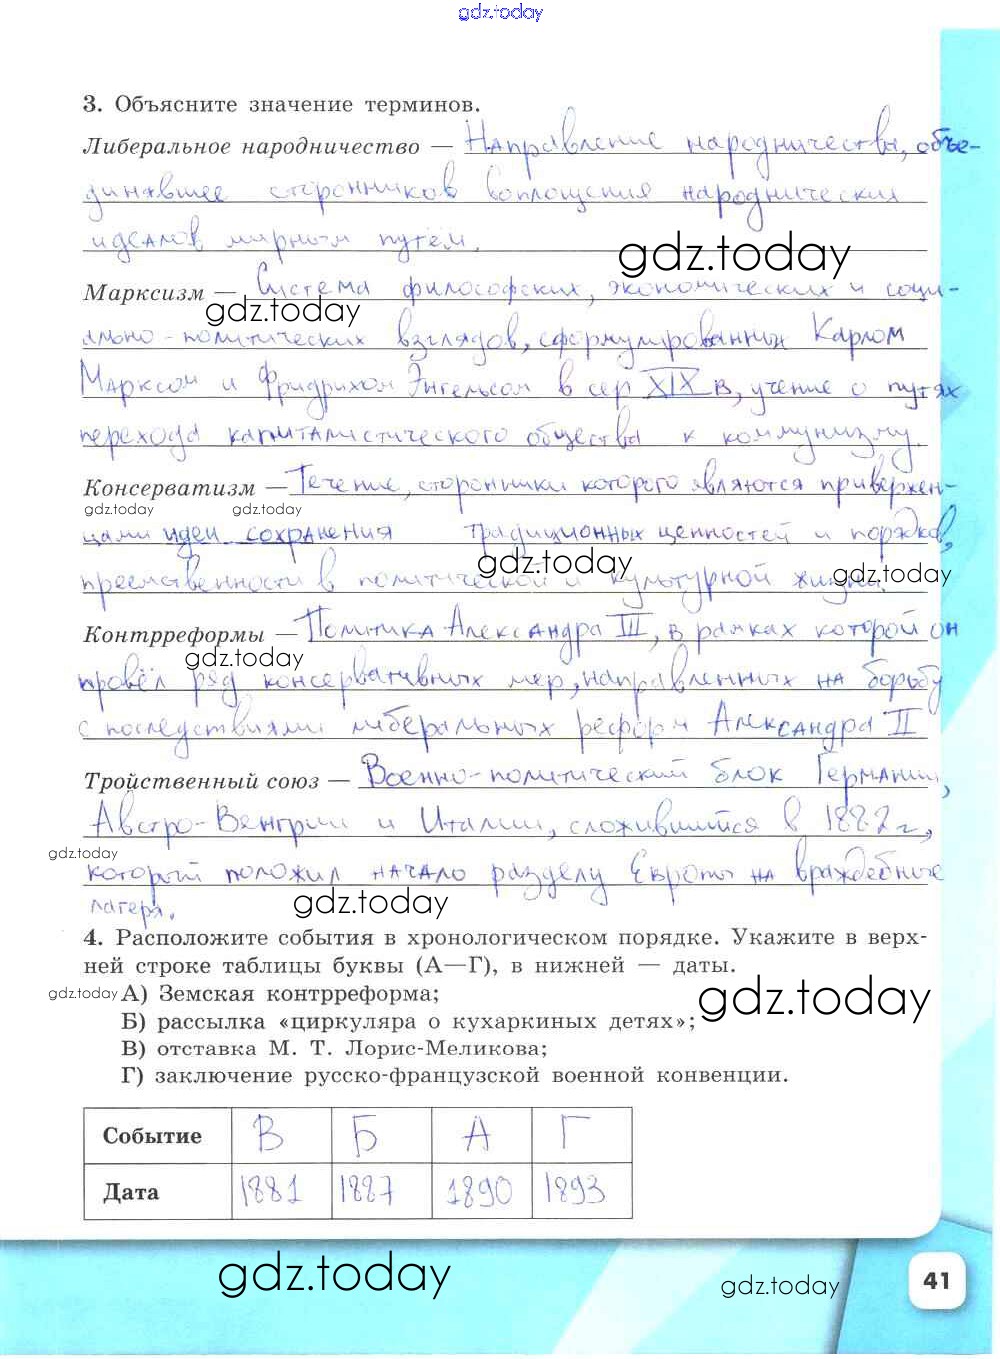 gdz.today
3. Объясните значение терминов.
Либеральное народничество — Направление народничества, объе-
динявшее сторонников воплощения народнических
идеалов мирным путём.
gdz.today
Марксизм — Система философских, экономических и соци-
gdz.today
ально-политических взглядов, сформулированных Карлом
Марксом и Фридрихом Энгельсом в сер XIX в, учение о путях
перехода капиталистического общества к коммунизму.
Консерватизм — Течение, сторонники которого являются привержен-
gdz.today gdz.today
цами идеи сохранения традиционных ценностей и порядков,
gdz.today gdz.today
преемственности в политической и культурной жизни.
Контрреформы — Политика Александра III, в рамках которой он
gdz.today
провёл ряд консервативных мер, направленных на борьбу
с последствиями либеральных реформ Александра II
Тройственный союз — Военно-политический блок Германии,
Австро-Венгрии и Италии, сложившийся в 1882 г,
gdz.today
который положил начало разделу Европы на враждебные
лагеря.
gdz.today
4. Расположите события в хронологическом порядке. Укажите в верх-
ней строке таблицы буквы (А—Г), в нижней — даты.
gdz.today А) Земская контрреформа;
gdz.today
Б) рассылка «циркуляра о кухаркиных детях»;
В) отставка М. Т. Лорис-Меликова;
Г) заключение русско-французской военной конвенции.
Событие В Б А Г
Дата 1881 1887 1890 1893
gdz.today
gdz.today
41